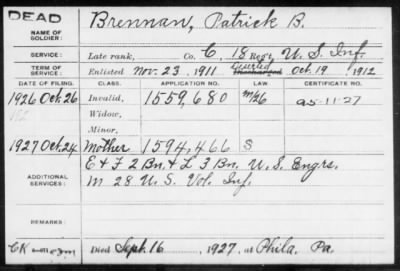 DEAD
NAME OF SOLDIER: Brennan, Patrick B.
SERVICE: Late rank, Co. C, 18 Reg't, U. S. Inf.
TERM OF SERVICE: Enlisted Nov. 23, 1911 Discharged Oct. 19, 1912
DATE OF FILING. CLASS. APPLICATION NO. LAW. CERTIFICATE NO.
1926 Oct. 26 Invalid, 1559,680
Widow,
Minor,
1927 Oct. 24 Mother 1594,466 S
ADDITIONAL SERVICES: E & F 2 Bn. & L 3 Bn. U. S. Engrs.
M 28 U. S. Vol. Inf.
REMARKS:
Died Sept. 16, 1927, at Phila. Pa.